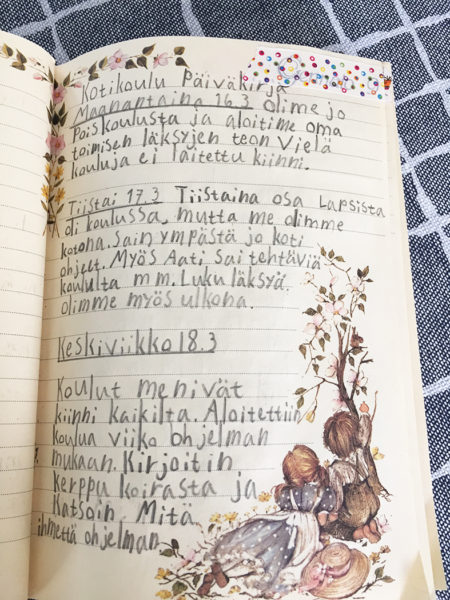 Kotikoulu Päiväkirja
Maanantaina 16.3 olime jo
Pois koulusta ja aloitime oma
toimisen läksyjen teon vielä
kouluja ei laitettu kiinni.
Tiistai 17.3 Tiistaina osa Lapsista
oli koulussa, mutta me olimme
kotona. Sain ympästä jo koti
ohjeet. Myös Aati sai tehtäviä
koululta mm. Luku läksyä.
olimme myös ulkona.
Keskiviikko 18.3
Koulut menivät
kiinni kaikilta. Aloitettiin
koulua viiko ohjelman
mukaan. Kirjoitin
kerppu koirasta ja
Katsoin Mitä
ihmettä ohjelman